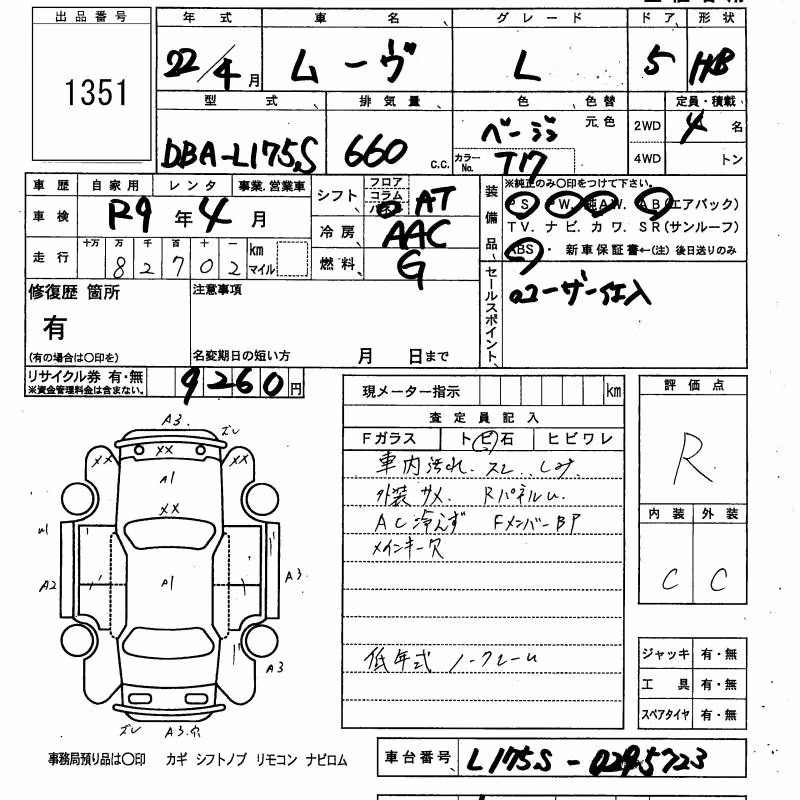 出品番号 年式 車名 グレード ドア 形状
1351 22/4月 ムーヴ L 5 HB
型式 排気量 色 色替 定員・積載
DBA-L175S 660 C.C. ベージュ 元色 2WD 4名
カラーNo. T17 4WD トン
車歴 自家用 レンタ 事業.営業車 シフト フロア コラム AT
装備品 ※純正のみ〇印をつけて下さい。
車検 R9年4月 PS. PW. 純AW. AB(エアバック)
冷房 AAC TV. ナビ. カワ. SR(サンルーフ)
走行 十万 万 千 百 十 一 km マイル
82702
燃料 G ABS・ 新車保証書←(注)後日送りのみ
修復歴 箇所 注意事項 セールスポイント ユーザー仕入
有
(有の場合は〇印を) 名変期日の短い方 月 日まで
リサイクル券 有・無 9260円
※資金管理料金は含まない。
現メーター指示 km 評価点
査定員記入 R
Fガラス トビ石 ヒビワレ
車内汚れ. スレ. しみ.
外装サメ. Rパネルu.
AC冷えず FメンバーBP 内装 外装
メインキー欠 C C
低年式 ノークレーム
A3. ズレ
XX XX XX
A1
XX
A2 A1 A3.
A3
ズレ A3.
ジャッキ 有・無
工具 有・無
スペアタイヤ 有・無
事務局預り品は〇印 カギ シフトノブ リモコン ナビロム 車台番号 L175S-0295723